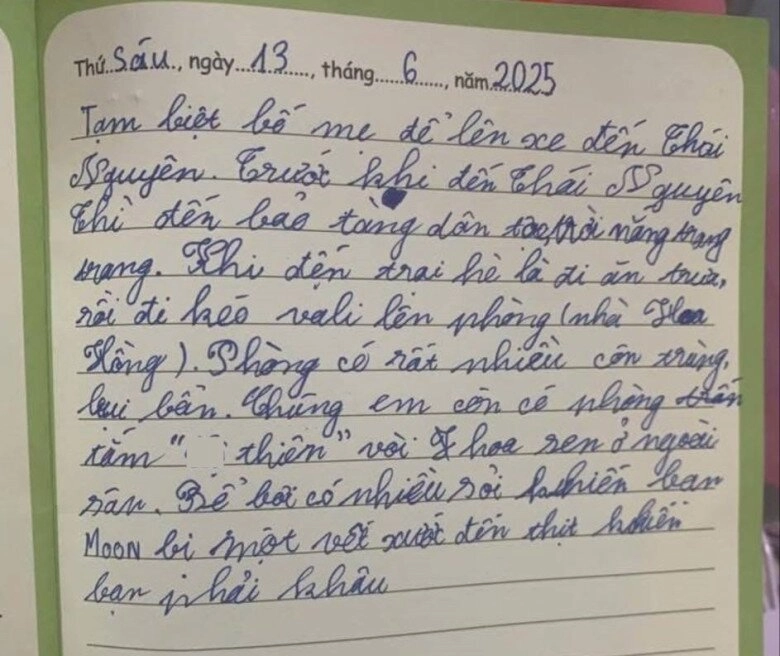 Thứ Sáu, ngày 13, tháng 6, năm 2025
Tạm biệt bố mẹ để lên xe đến Thái
Nguyên. Trước khi đến Thái Nguyên
thì đến bảo tàng dân trời nắng trang
trang. Khi đến trại hè là đi ăn trưa,
rồi đi kéo vali lên phòng (nhà Hoa
Hồng). Phòng có rất nhiều côn trùng,
bụi bẩn. Chúng em còn có phòng
tắm " thiên" với hoa sen ở ngoài
sân. Bể bơi có nhiều sỏi khiến bạn
MOON bị một vết xước đến thịt khiến
bạn phải khâu